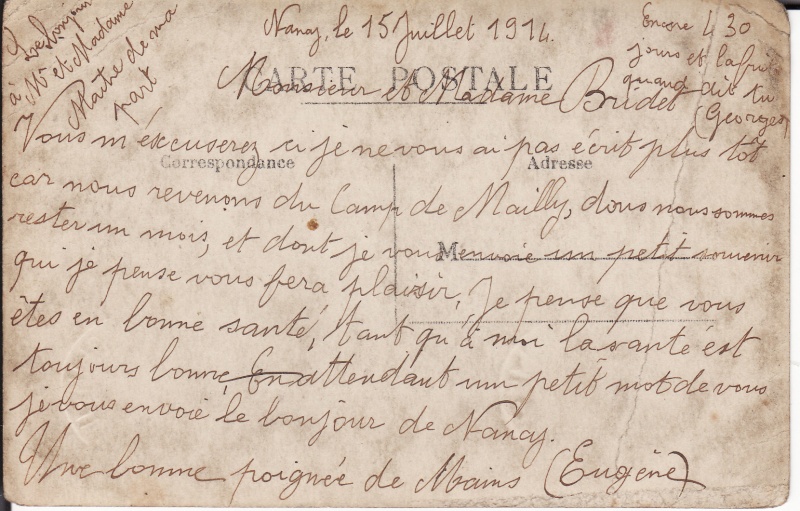 Nancy, le 15 Juillet 1914.
le bonjour
à Mr et Madame
Maître de ma
part
Encore 430
jours et la fuite
quand dit tu
(Georges)
CARTE POSTALE
Monsieur et Madame Bridet
Vous m'éxcuserez ci je ne vous ai pas écrit plus tôt
Correspondance
Adresse
car nous revenons du Camp de Mailly, dous nous sommes
rester un mois, et dont je vous envoie un petit souvenir
M
qui je pense vous fera plaisir, Je pense que vous
êtes en bonne santé, tant qu'à moi la santé est
toujours bonne, En attendant un petit mot de vous
je vous envoie le bonjour de Nancy.
Une bonne poignée de Mains (Eugène)